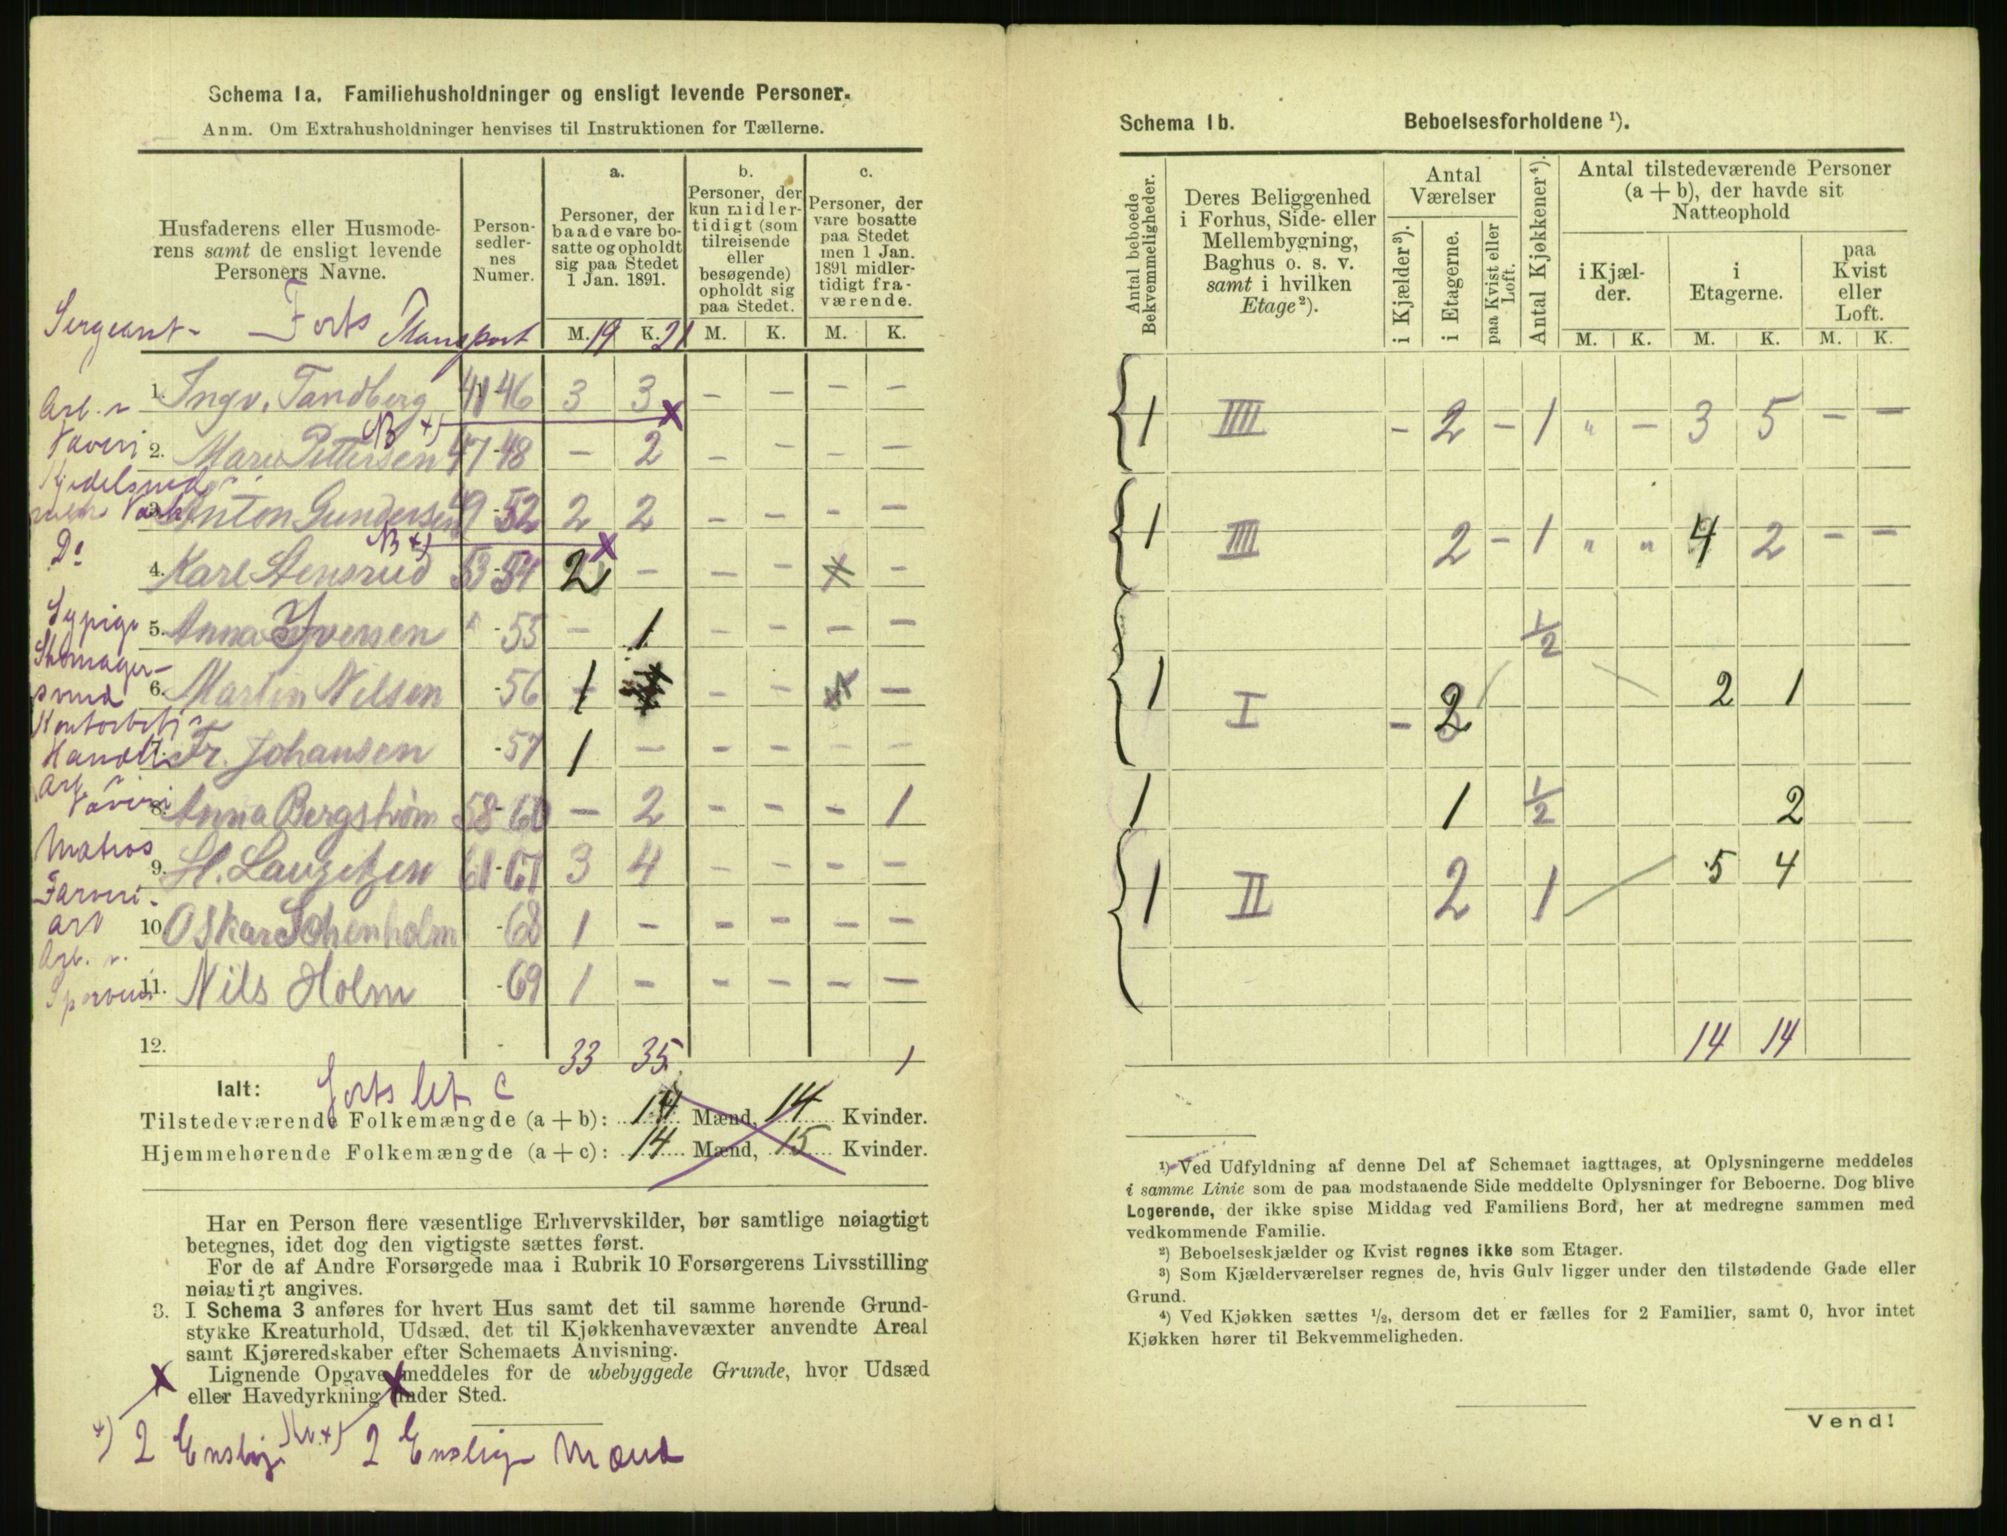 Schema 1a. Familiehusholdninger og ensligt levende Personer.
Anm. Om Extrahusholdninger henvises til Instruktionen for Tællerne.
Husfaderens eller Husmode-
rens samt de ensligt levende
Personers Navne.
Person-
sedler-
nes
Numer.
a.
Personer, der
baade vare bo-
satte og opholdt
sig paa Stedet
1 Jan. 1891.
b.
Personer, der
kun midler-
tidigt (som
tilreisende
eller
besøgende)
opholdt sig
paa Stedet.
c.
Personer, der
vare bosatte
paa Stedet
men 1 Jan.
1891 midler-
tidigt fra-
værende.
Sergeant - Forts Transport M. 19 K. 21 M. K. M. K.
1. Ingv. Tandberg 41-46 3 3 - - - -
Arb. v Væveri
2. Marie Pettersen 47-48 - 2 - - - -
Kjedelsmed
3. Anton Gundersen 49-52 2 2 - - - -
Do
4. Karl Stensrud 53-54 2 - - - x -
Sypige
5. Anna Iversen " -55 - 1 - - - -
Skomager-
svend
6. Martin Nilsen -56 1 - - -
7. Fr. Johansen -57 1 - - - - -
Arb. v Væveri
8. Anna Bergstrøm 58-60 - 2 - - - 1
Matros
9. H. Lauritzen 61-67 3 4 - - - -
Farveri-
arb
10 Oskar Schenholm -68 1 - - - - -
Arb. v.
11. Nils Holm -69 1 - - - - -
12. 33 35 1
Ialt: Forts let C
Tilstedeværende Folkemængde (a + b): 14 Mænd, 14 Kvinder.
Hjemmehørende Folkemængde (a + c): 14 Mænd, 15 Kvinder.
Har en Person flere væsentlige Erhvervskilder, bør samtlige nøiagtigt
betegnes, idet dog den vigtigste sættes først.
For de af Andre Forsørgede maa i Rubrik 10 Forsørgerens Livsstilling
nøiagtigt angives.
3. I Schema 3 anføres for hvert Hus samt det til samme hørende Grund-
stykke Kreaturhold, Udsæd, det til Kjøkkenhavevæxter anvendte Areal
samt Kjøreredskaber efter Schemaets Anvisning.
Lignende Opgave meddeles for de ubebyggede Grunde, hvor Udsæd
eller Havedyrkning finder Sted.
+) 2 Enslige +) 2 Enslige Mænd
Schema 1b. Beboelsesforholdene ¹).
Antal beboede
Bekvemmeligheder.
Deres Beliggenhed
i Forhus, Side- eller
Mellembygning,
Baghus o. s. v.
samt i hvilken
Etage ²).
Antal
Værelser
i Kjælder ³).
i Etagerne.
paa Kvist eller
Loft.
Antal Kjøkkener ⁴).
Antal tilstedeværende Personer
(a + b), der havde sit
Natteophold
i Kjæl-
der.
i
Etagerne.
paa
Kvist
eller
Loft.
M. K. M. K. M. K.
1 IIII - 2 - 1 " - 3 5 - -
1 IIII 2 - 1 " " 4 2 - -
½
1 I - 2 2 1
1 1 ½ 2
1 II 2 1 5 4
14 14
¹) Ved Udfyldning af denne Del af Schemaet iagttages, at Oplysningerne meddeles
i samme Linie som de paa modstaaende Side meddelte Oplysninger for Beboerne. Dog blive
Logerende, der ikke spise Middag ved Familiens Bord, her at medregne sammen med
vedkommende Familie.
²) Beboelseskjælder og Kvist regnes ikke som Etager.
³) Som Kjælderværelser regnes de, hvis Gulv ligger under den tilstødende Gade eller
Grund.
⁴) Ved Kjøkken sættes ½, dersom det er fælles for 2 Familier, samt 0, hvor intet
Kjøkken hører til Bekvemmeligheden.
Vend!